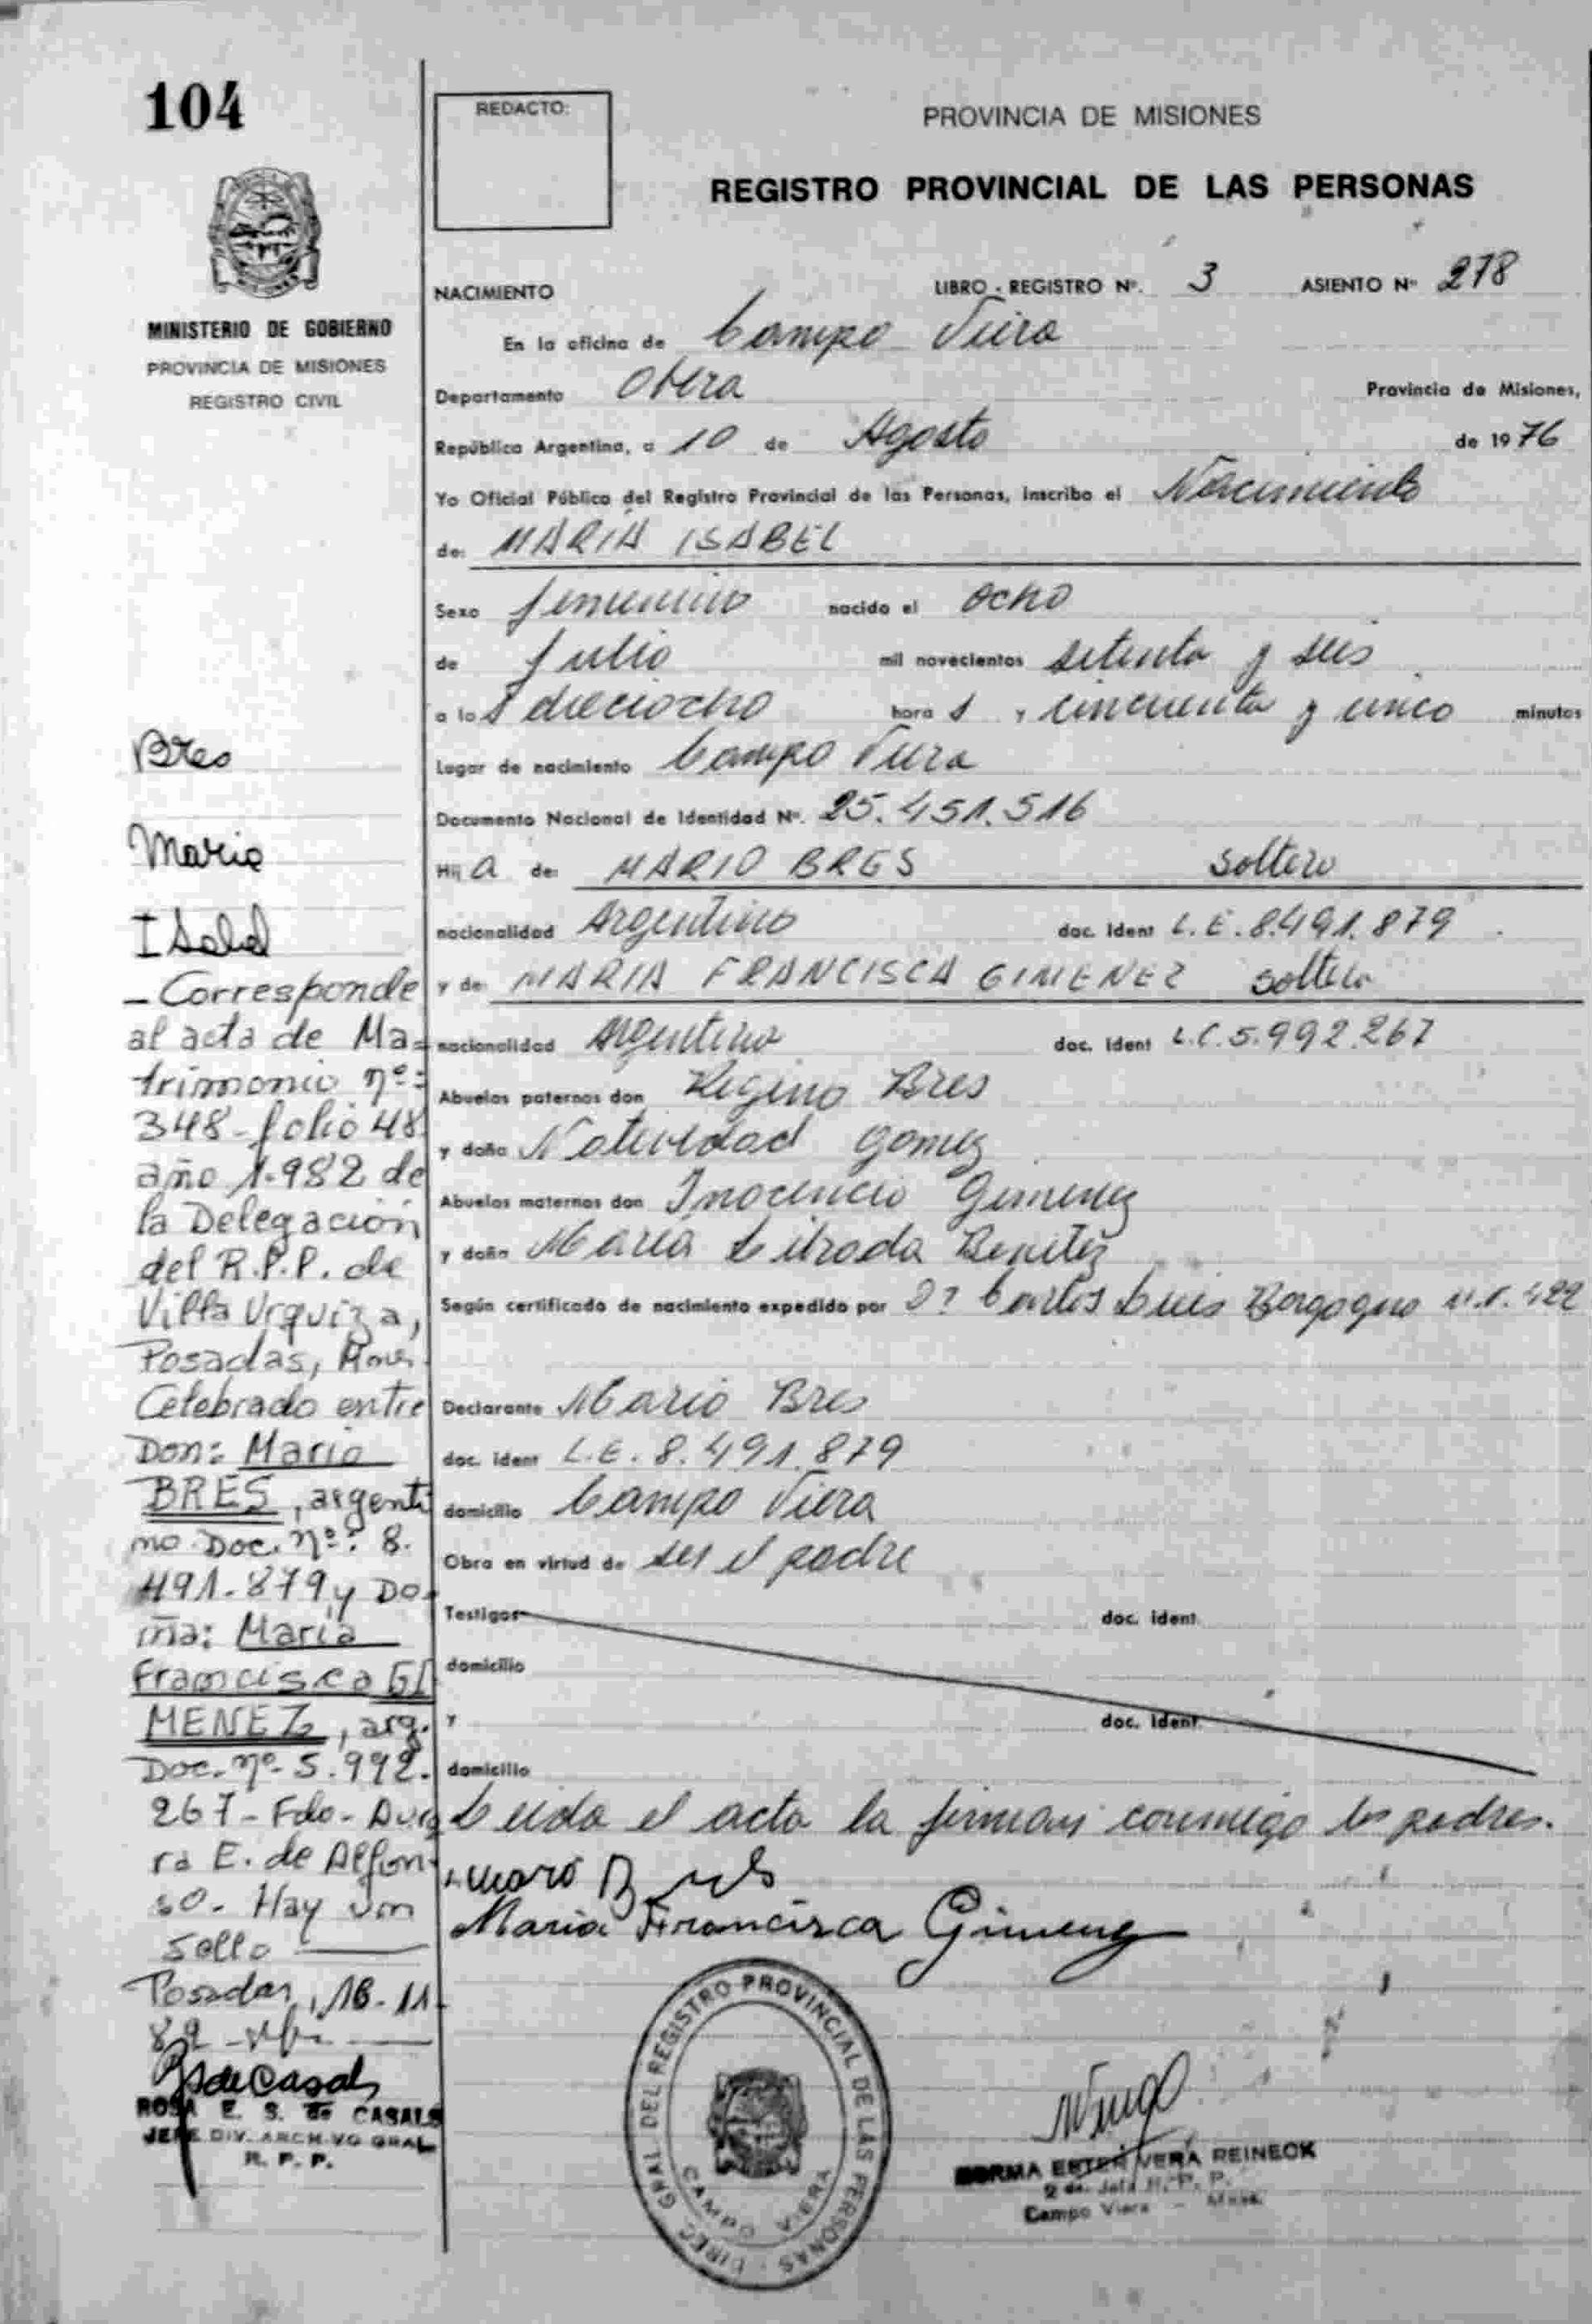 104
MINISTERIO DE GOBIERNO
PROVINCIA DE MISIONES
REGISTRO CIVIL
REDACTO:
PROVINCIA DE MISIONES
REGISTRO PROVINCIAL DE LAS PERSONAS
NACIMIENTO LIBRO - REGISTRO Nº. 3 ASIENTO Nº 278
En la oficina de Campo Viera
Departamento Obera Provincia de Misiones,
República Argentina, a 10 de Agosto de 1976
Yo Oficial Público del Registro Provincial de las Personas, inscribo el Nacimiento
de: MARIA ISABEL
Sexo femenino nacido el ocho
de Julio mil novecientos setenta y seis
a las dieciocho horas y cincuenta y cinco minutos
Lugar de nacimiento Campo Viera
Documento Nacional de Identidad Nº. 25.451.516
Hija de: MARIO BRES soltero
nacionalidad Argentino doc. ident L.E. 8.491.879
y de: MARIA FRANCISCA GIMENEZ soltera
nacionalidad Argentina doc. ident L.C. 5.992.267
Abuelos paternos don Regino Bres
y doña Natividad Gomez
Abuelos maternos don Inocencio Gimenez
y doña Maria Librada Benitez
Según certificado de nacimiento expedido por Dr Carlos Luis Borgogno 422
Declarante Mario Bres
doc. ident L.E. 8.491.879
domicilio Campo Viera
Obra en virtud de ser el padre
Testigos doc. ident.
domicilio
y doc. ident.
domicilio
Leida el acta la firman conmigo los padres.
Mario Bres
Maria Francisca Gimenez
DIREC. GRAL. DEL REGISTRO PROVINCIAL DE LAS PERSONAS
CAMPO VIERA
NORMA ESTER VERA REINECK
2 da. Jefa R. P. P.
Campo Viera - Mnes.
Bres
Maria
Isabel
- Corresponde
al acta de Ma-
trimonio nº:
348 - folio 48
año 1.982 de
la Delegación
del R.P.P. de
Villa Urquiza,
Posadas, Mnes.
Celebrado entre
Don: Mario
BRES, argenti
no Doc. nº: 8.
491.879 y Do-
ña: María
Francisca GI
MENEZ, arg.
Doc. nº 5.992.
267 - Fdo - Auro
ra E. de Alfon-
so - Hay un
sello
Posadas, 16-11
82
R S de Casals
ROSA E. S. de CASALS
JEFE DIV. ARCHIVO GRAL
R. P. P.